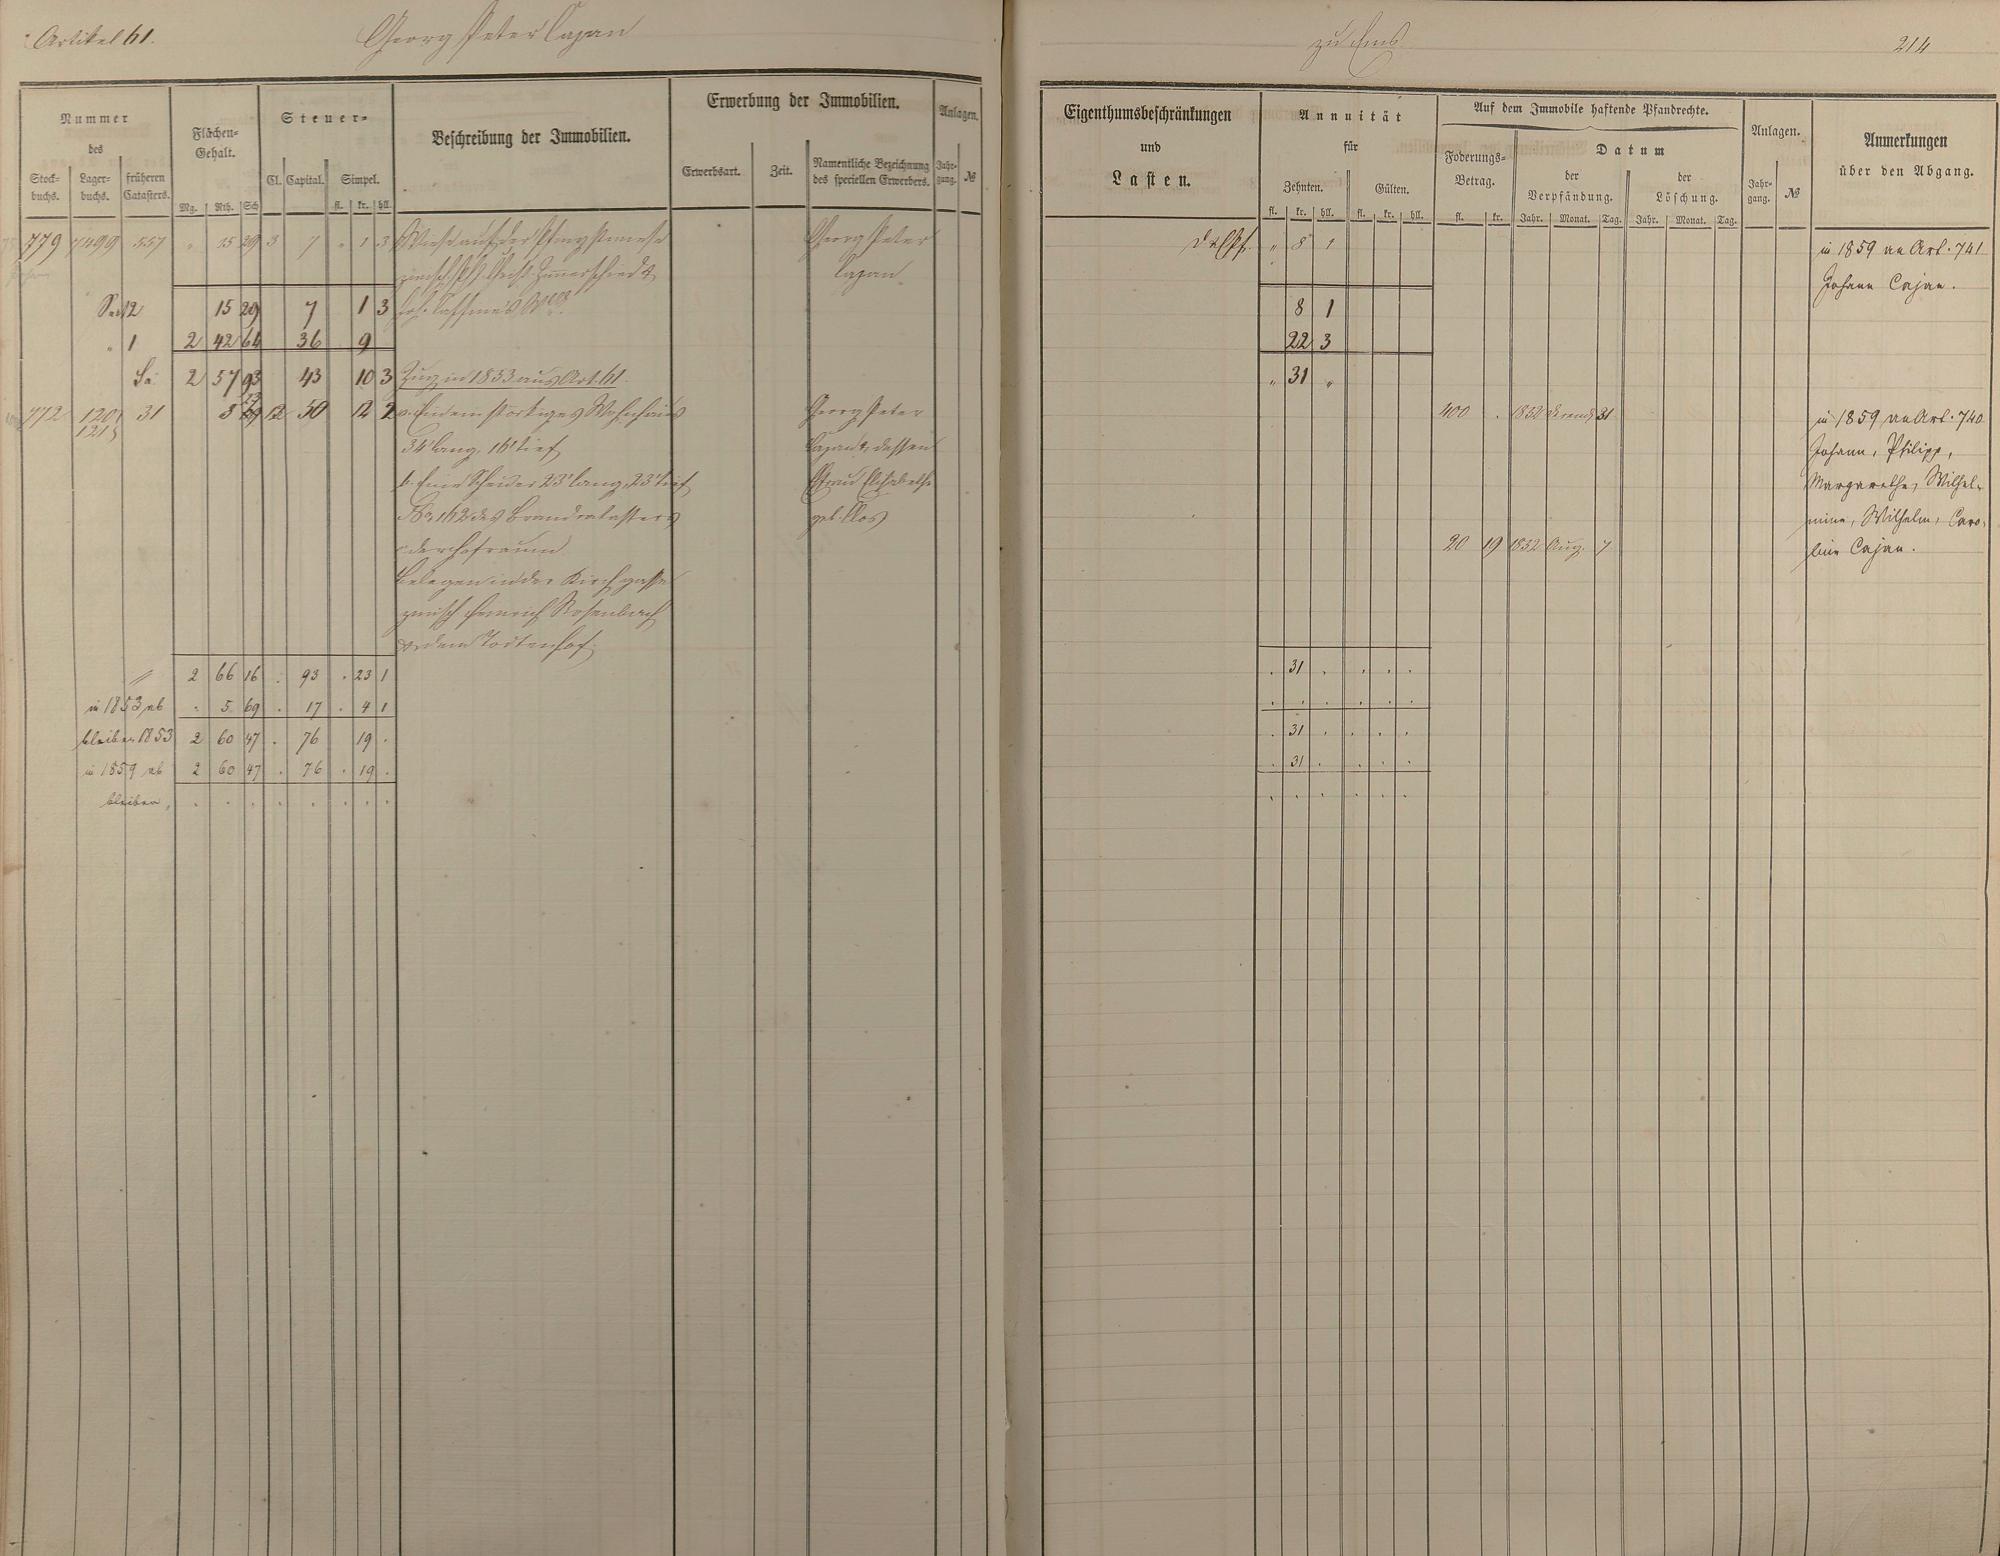 Artikel 61.
Georg Peter Cajan
zu Ems
214
Nummer
des
Stock-
buchs.
Lager-
buchs.
früheren
Catasters.
Flächen-
Gehalt.
Mg.
Rth.
Sch
Steuer-
Cl.
Capital.
Simpel.
fl.
kr.
hll.
Beschreibung der Immobilien.
Erwerbung der Immobilien.
Erwerbsart.
Zeit.
Namentliche Bezeichnung
des speciellen Erwerbers.
Anlagen.
Jahr-
gang.
№
Eigenthumsbeschränkungen
und
Lasten.
Annuität
für
Zehnten.
Gülten.
fl. kr. hll. fl. kr. hll.
Auf dem Immobile haftende Pfandrechte.
Foderungs-
Betrag.
fl. kr.
Datum
der
Verpfändung.
Jahr. Monat. Tag.
der
Löschung.
Jahr. Monat. Tag.
Anlagen.
Jahr-
gang.
№
Anmerkungen
über den Abgang.
779 7499 557 " 15 29 3 7 " 1 3 Wiese auf der
Georg Peter
Cajan
" 8 1
in 1859 an Art. 741
Johann Cajan.
2 15 29 7 1 3
8 1
" 1 2 42 64 36 9
22 3
Sa. 2 57 93 43 10 3 Zug in 1833 aus Art. 61.
" 31 "
772 120 31 8 12 50 12 2 a. Ein einstöckiges Wohnhaus
121
34' lang, 16' tief
b. Eine Scheuer 23' lang, 23' tief
No. 162 des Brandcatasters
c. der Hofraum
belegen in der Kirchgasse
zwisch. Heinrich Rosenbach
& dem Todtenhof.
Georg Peter
Cajan & dessen
Frau Elisabethe
geb. Clos
400 . 1832 31
20 19 1832 Aug. 7
in 1859 an Art. 740
Johann, Philipp,
Margarethe, Wilhel-
mine, Wilhelm, Caro-
line Cajan.
2 66 16 . 93 . 23 1
. 31 . . . .
in 1853 ab . 5 69 . 17 . 4 1
. . . . . .
bleiben 1853 2 60 47 . 76 19 .
. 31 . . . .
in 1859 ab 2 60 47 . 76 . 19 .
. 31 . . . .
bleiben . . . . . . . .
. . . . . .